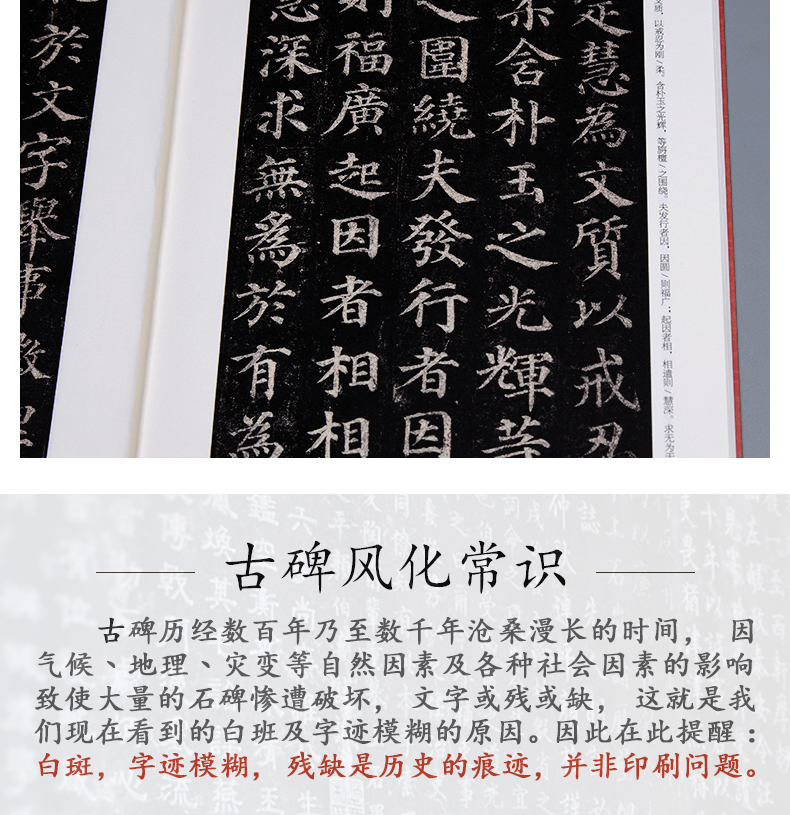 文质，以戒忍为刚/柔。含朴玉之光辉，等旃檀/之围绕。夫发行者因，因圆/则福广；起因者相，相遣则/慧深。求无为于
定慧為文質以戒忍
柔含朴玉之光輝等
之圍繞夫發行者因
則福廣起因者相相
慧深求無為於有為
於文字舉事
古碑风化常识
古碑历经数百年乃至数千年沧桑漫长的时间， 因
气候、地理、灾变等自然因素及各种社会因素的影响
致使大量的石碑惨遭破坏， 文字或残或缺， 这就是我
们现在看到的白班及字迹模糊的原因。因此在此提醒：
白斑，字迹模糊，残缺是历史的痕迹，并非印刷问题。